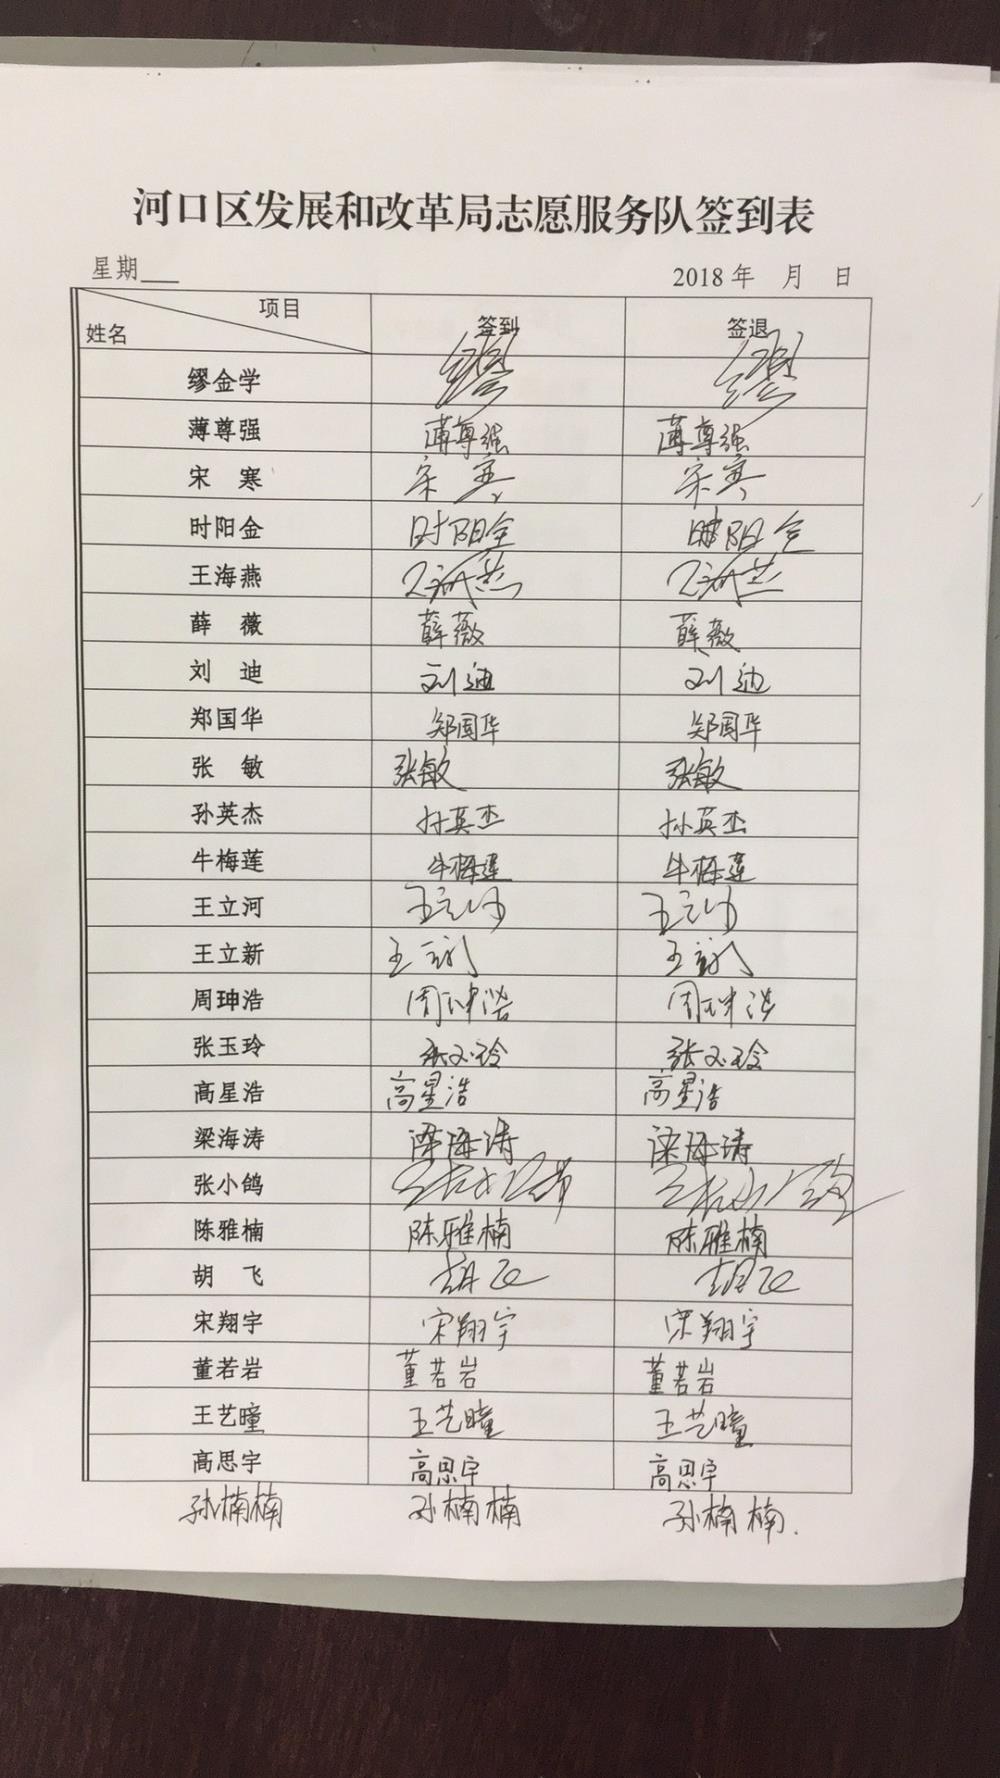 河口区发展和改革局志愿服务队签到表
星期___ 2018 年 月 日
项目
姓名 签到 签退
缪金学 缪 缪
薄尊强 薄尊强 薄尊强
宋 寒 宋寒 宋寒
时阳金 时阳金 时阳金
王海燕 王海燕 王海燕
薛 薇 薛薇 薛薇
刘 迪 刘迪 刘迪
郑国华 郑国华 郑国华
张 敏 张敏 张敏
孙英杰 孙英杰 孙英杰
牛梅莲 牛梅莲 牛梅莲
王立河 王立河 王立河
王立新 王立新 王立新
周珅浩 周珅浩 周珅浩
张玉玲 张玉玲 张玉玲
高星浩 高星浩 高星浩
梁海涛 梁海涛 梁海涛
张小鸽 张小鸽 张小鸽
陈雅楠 陈雅楠 陈雅楠
胡 飞 胡飞 胡飞
宋翔宇 宋翔宇 宋翔宇
董若岩 董若岩 董若岩
王艺曈 王艺曈 王艺曈
高思宇 高思宇 高思宇
孙楠楠 孙楠楠 孙楠楠.